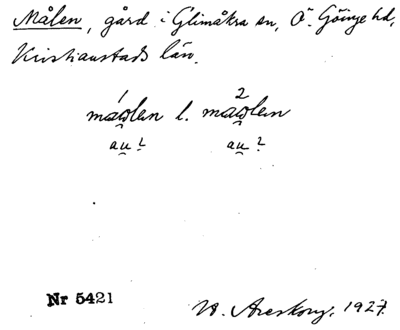 Målen, gård i Glimåkra sn, Ö. Göinge hd,
Kristianstads län.
máω̯len l. ma²ω̯len
au̯? au̯?
Nr 5421
W. Areskog, 1927.